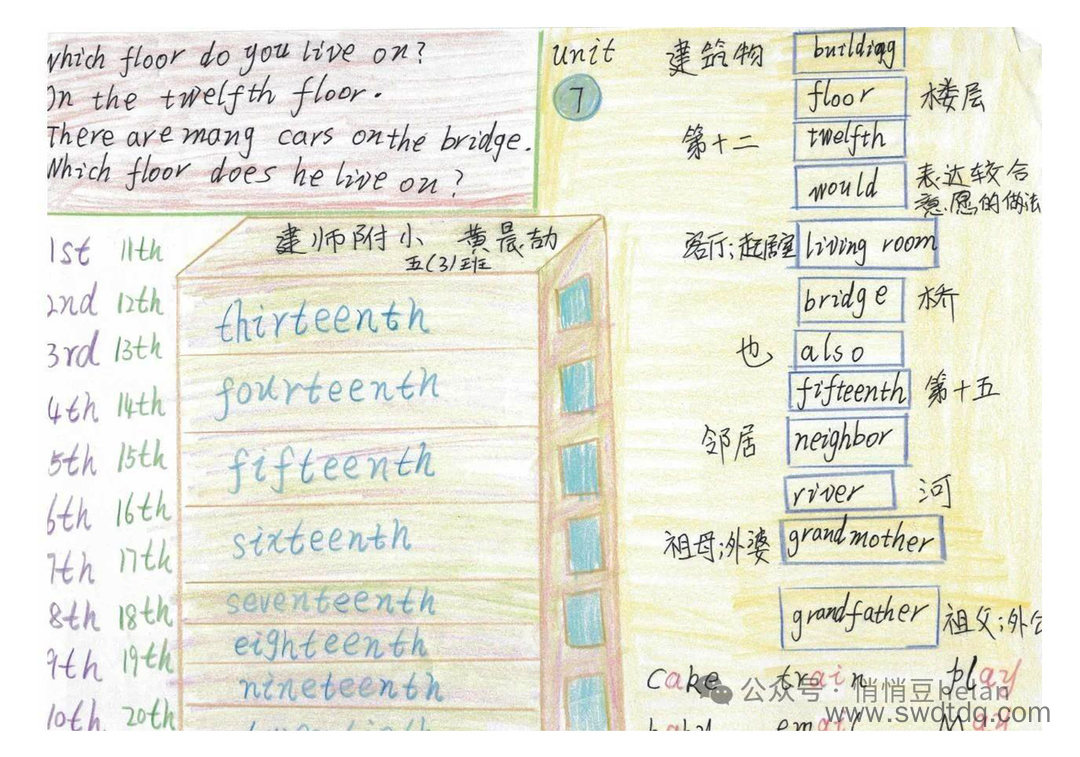 Which floor do you live on?
On the twelfth floor.
There are mang cars on the bridge.
Which floor does he live on?
Unit
7
建筑物 building
floor 楼层
第十二 twelfth
would 表达较合
意愿的做法
客厅;起居室 living room
bridge 桥
也 also
fifteenth 第十五
邻居 neighbor
river 河
祖母;外婆 grandmother
grandfather 祖父;外公
建师附小 黄晨劼
五(3)班
1st 11th
2nd 12th
3rd 13th
4th 14th
5th 15th
6th 16th
7th 17th
8th 18th
9th 19th
10th 20th
thirteenth
fourteenth
fifteenth
sixteenth
seventeenth
eighteenth
nineteenth
cake train play
baby email May
公众号·悄悄豆helan
www.swdtdg.com